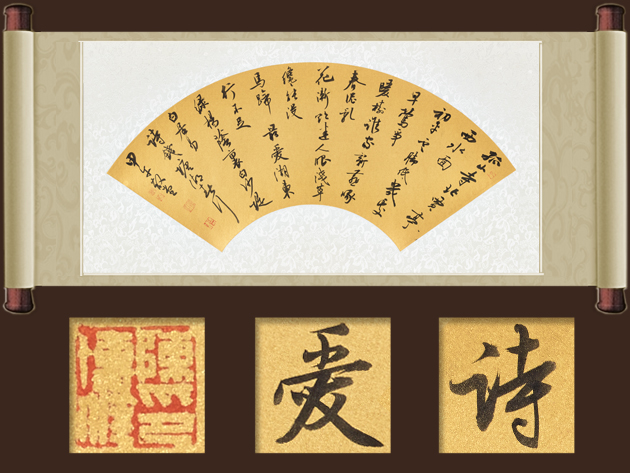 孤山寺北贾亭
西水面
初平云脚低几处
早莺争
暖树谁家新燕啄
春泥乱
花渐欲迷人眼浅草
才能没
马蹄最爱湖东
行不足
绿杨阴里白沙堤
白居易
诗钱塘湖春行
甲午
爱
诗